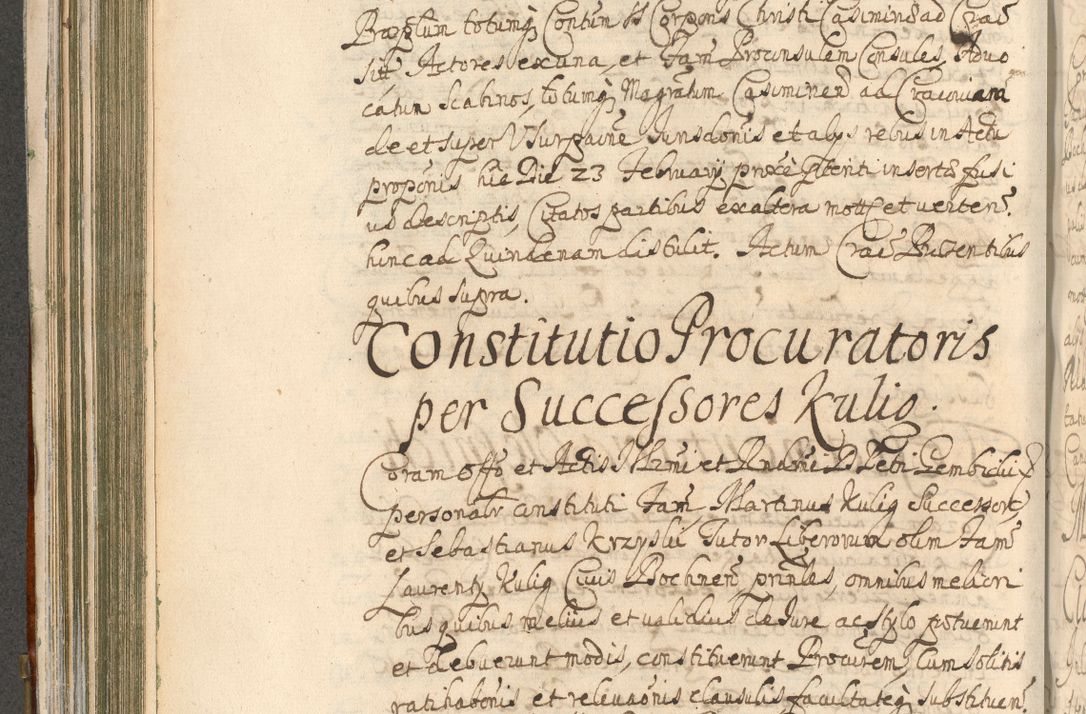 Bazylum totumq Contum SS Corporis Christi Casimiriead Crac
sitt Actores ex una, et Fam Proconsulem Consules, Advo
catum Scabinos, totumq Magratum Casimirien ad Cracoviam
de et super Usurpaone Jurisdonis et alys rebus in Actu
proponis hic Die 23 February proxe pteriti inserto fusi
us descriptis, Citatos partibus ex altera mott et verten
hinc ad Quindenam distulit. Actum Crac Presentibus
quibus supra.
Constitutio Procuratoris
per Successores Kulig.
Coram offo et Actis Illmi et Rndmi D Petri Gembicki
personalr constituti Fam Martinus Kulig Successor
et Sebastianus Krzyslii Tutor Liberorum olim Fam
Laurenty Kulig Civis Bochnen prinles, omnibus meliori
bus quibus melius et validius de Jure ac stylo potuerunt
et debuerunt modis, constituerunt Procurem, cum solitis
ratihabonis et relevaonis clausulis facultateq substituen